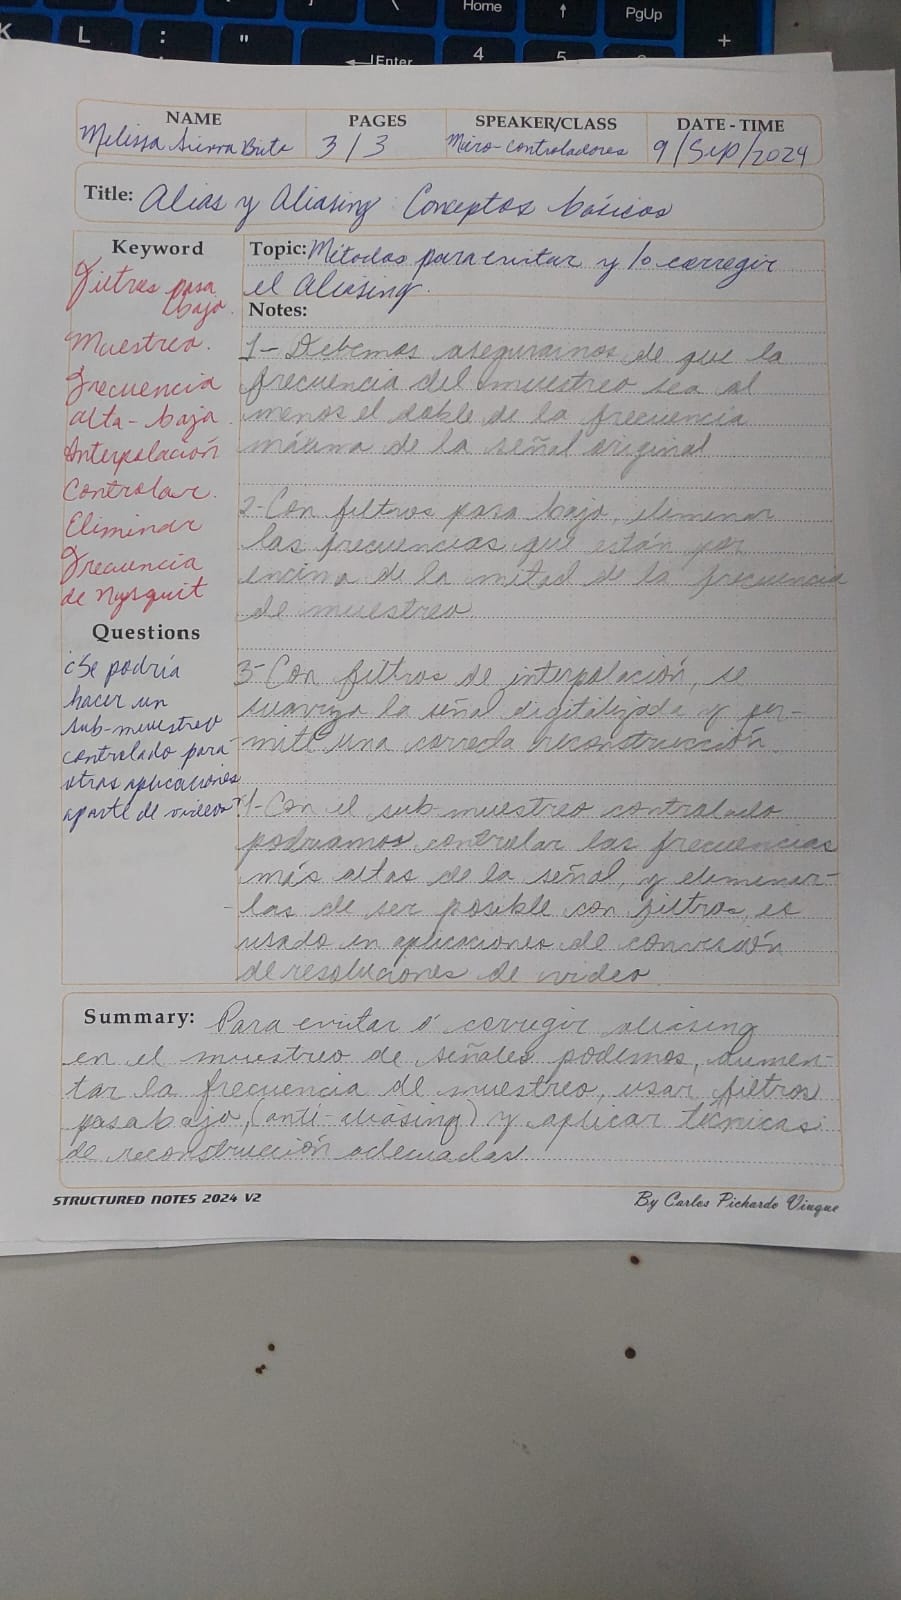 Home
PgUp
K
L
:
"
Enter
4
5
+
NAME PAGES SPEAKER/CLASS DATE - TIME
Melissa Sierra Brito 3/3 Micro-controladores 9/Sep/2024
Title: Alias y Aliasing: Conceptos básicos
Keyword
Filtros pasa
bajo.
Muestreo.
Frecuencia
alta-baja
Interpolación
Controlar.
Eliminar
Frecuencia
de Nysquit
Questions
¿Se podría
hacer un
sub-muestreo
controlado para
otras aplicaciones
aparte de videos?
Topic: Métodos para evitar y/o corregir
el Aliasing.
Notes:
1- Debemos asegurarnos de que la
frecuencia del muestreo sea al
menos el doble de la frecuencia
máxima de la señal original
2- Con filtros pasa bajo, eliminar
las frecuencias que están por
encima de la mitad de la frecuencia
de muestreo.
3- Con filtros de interpolación, se
suaviza la señal digitalizada y per-
mite una correcta reconstrucción.
4- Con el sub-muestreo controlado
podríamos controlar las frecuencias
más altas de la señal, y eliminar-
las de ser posible con filtros, es
usado en aplicaciones de conversión
de resoluciones de video
Summary: Para evitar ó corregir aliasing
en el muestreo de señales podemos, aumen-
tar la frecuencia de muestreo, usar filtros
pasabajo, (anti-aliasing) y aplicar técnicas
de reconstrucción adecuadas
STRUCTURED NOTES 2024 V2 By Carlos Pichardo Viuque